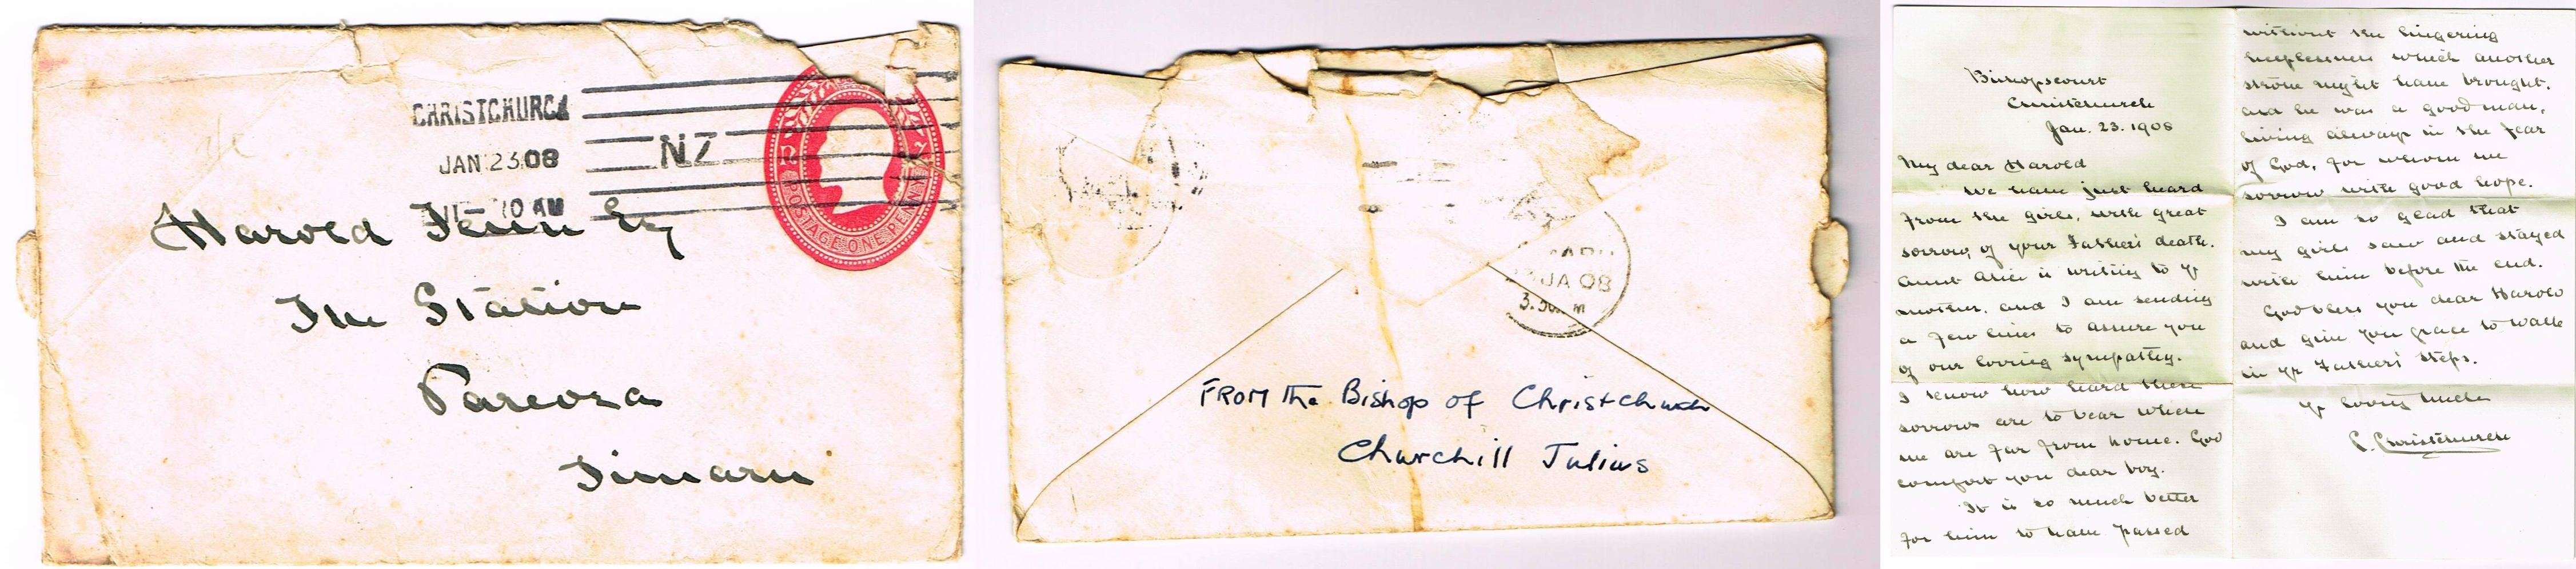 CHRISTCHURCH
JAN 23 08
10 AM
NZ
POSTAGE ONE PENNY
Harold Esq
The Station
Pareora
Timaru
JA 08
3.30 M
FROM the Bishop of Christchurch
Churchill Julius
Bishopscourt
Christchurch
Jan. 23. 1908
My dear Harold
We have just heard
from the girls, with great
sorrow, of your Father's death.
Aunt Alice is writing to yr
mother, and I am sending
a few lines to assure you
of our loving sympathy.
I know how hard these
sorrows are to bear when
we are far from home. God
comfort you dear boy.
It is so much better
for him to have passed
without the lingering
helplessness which another
stroke might have brought.
and he was a good man,
living always in the fear
of God, for whom we
sorrow with good hope.
I am so glad that
my girls saw and stayed
with him before the end.
God bless you dear Harold
and give you grace to walk
in yr Father's steps.
yr loving Uncle
C. Christchurch